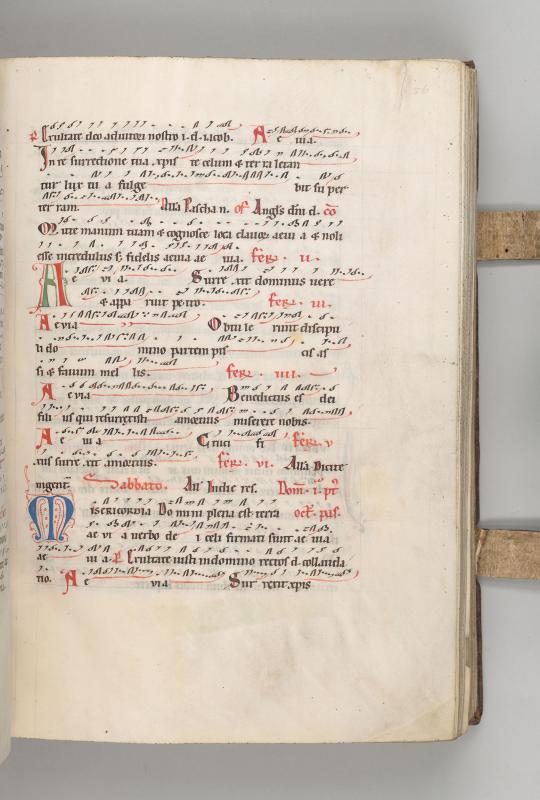 Exultate deo adiutori nostro i. d. iacob. A e uia.
In re surrectione tua xpis te celum & ter ra letan
tur lux tu a fulge bit su per
ter ram. Alla Pascha n. of Angls dni d. co
Mitte manum tuam & cognosce loca clauor aeuia & noli
esse incredulus s; fidelis aeuia ae uia. fer. ii.
A e vi a. Surre xit dominus uere
& appa ruit petro. fer. iii.
A e via Obtu le runt discipu
li do mino partem pis cis as
si & fauum mel lis. fer. iiii.
A e via Benedictus es dei
fili us qui resurrexisti amortuis miserere nobis.
A e uia Cruci fi fer. v
xus surre xit amortuis. fer. vi. Alla Dicite
ingent. Sabbato. All Iudic res. Dom. i. pt
Misericordia Domini plena est terra oct. pas.
ae vi a verbo de i celi firmati sunt ae uia
ae ui a. Exultate iusti indomino rectos d. collauda
tio. A e via Sur rexit xpis